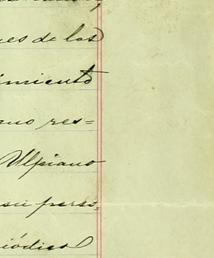 es de los
imiento
uno res-
Ulpiano
su pers-
iódico